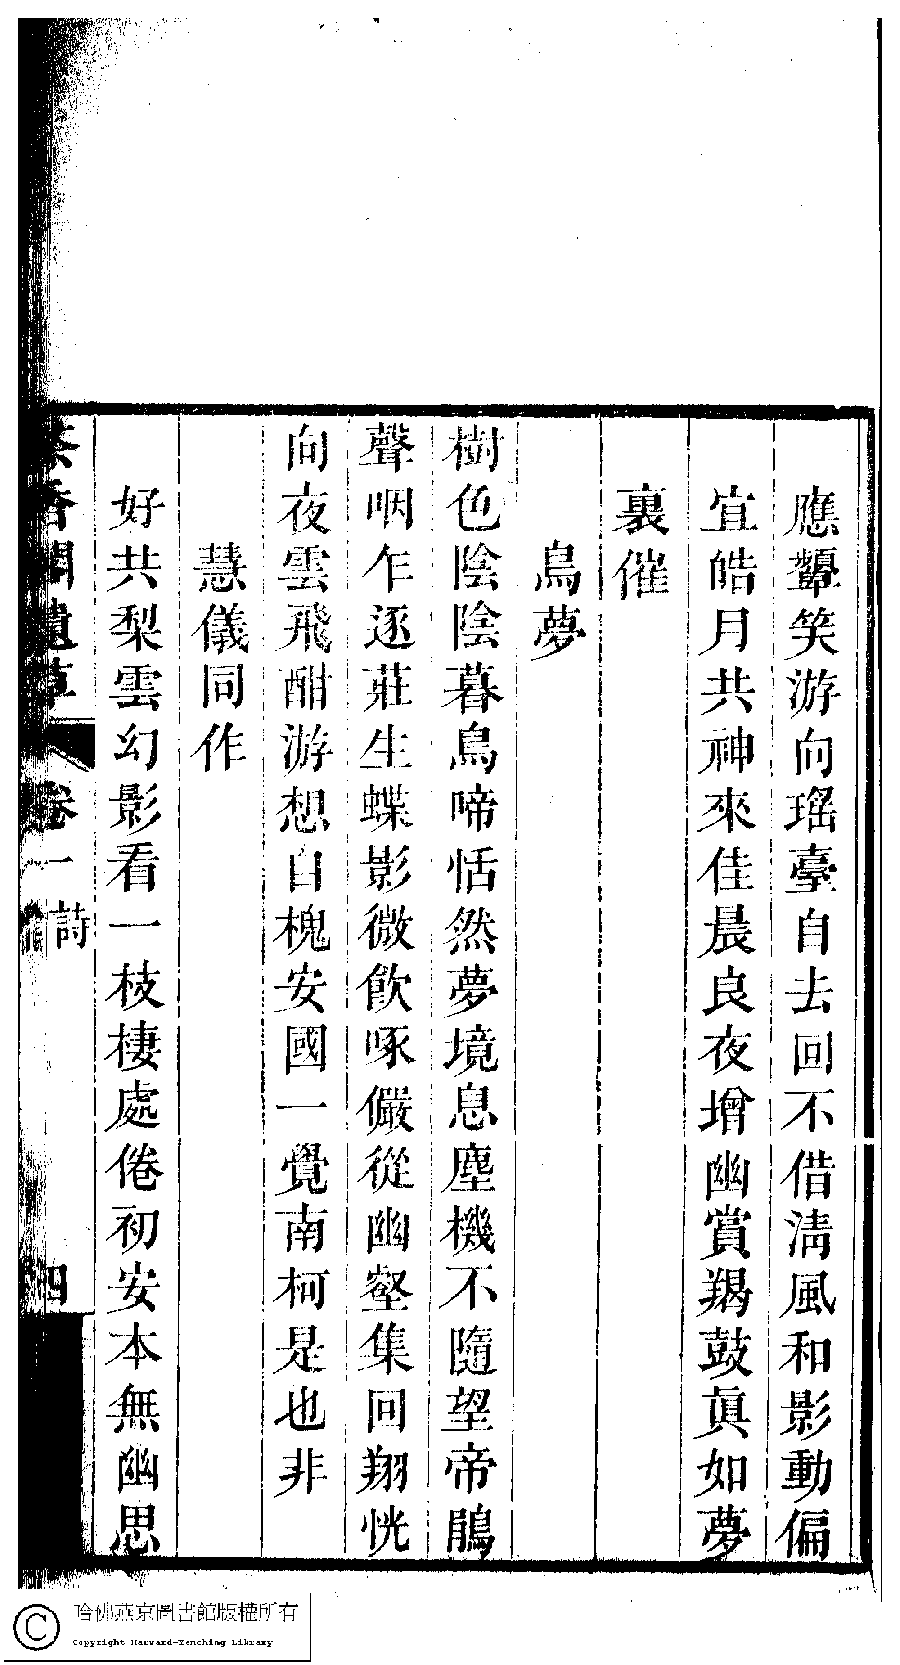 應顰笑游向瑤臺自去回不借淸風和影動偏
宜皓月共神來佳晨良夜增幽賞羯鼓眞如夢
裏催
鳥夢
樹色陰陰暮鳥啼恬然夢境息塵機不隨望帝鵑
聲咽乍逐莊生蝶影微飮啄儼從幽壑集回翔恍
向夜雲飛酣游想自槐安國一覺南柯是也非
慧儀同作
好共梨雲幻影看一枝棲處倦初安本無幽思
香閣遺草 卷一 詩 四
哈佛燕京圖書館版權所有
Copyright Harvard-Yenching Library